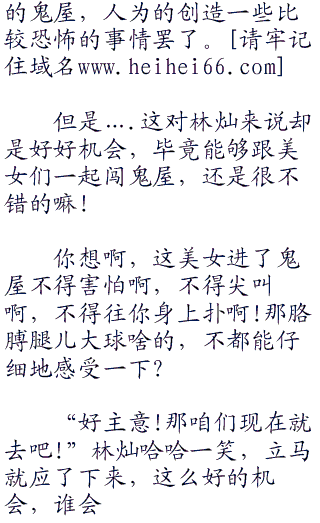 的鬼屋，人为的创造一些比
较恐怖的事情罢了。[请牢记
住域名www.heihei66.com]
但是….这对林灿来说却
是好好机会，毕竟能够跟美
女们一起闯鬼屋，还是很不
错的嘛！
你想啊，这美女进了鬼
屋不得害怕啊，不得尖叫
啊，不得往你身上扑啊！那胳
膊腿儿大球啥的，不都能仔
细地感受一下？
“好主意！那咱们现在就
去吧！”林灿哈哈一笑，立马
就应了下来，这么好的机
会，谁会